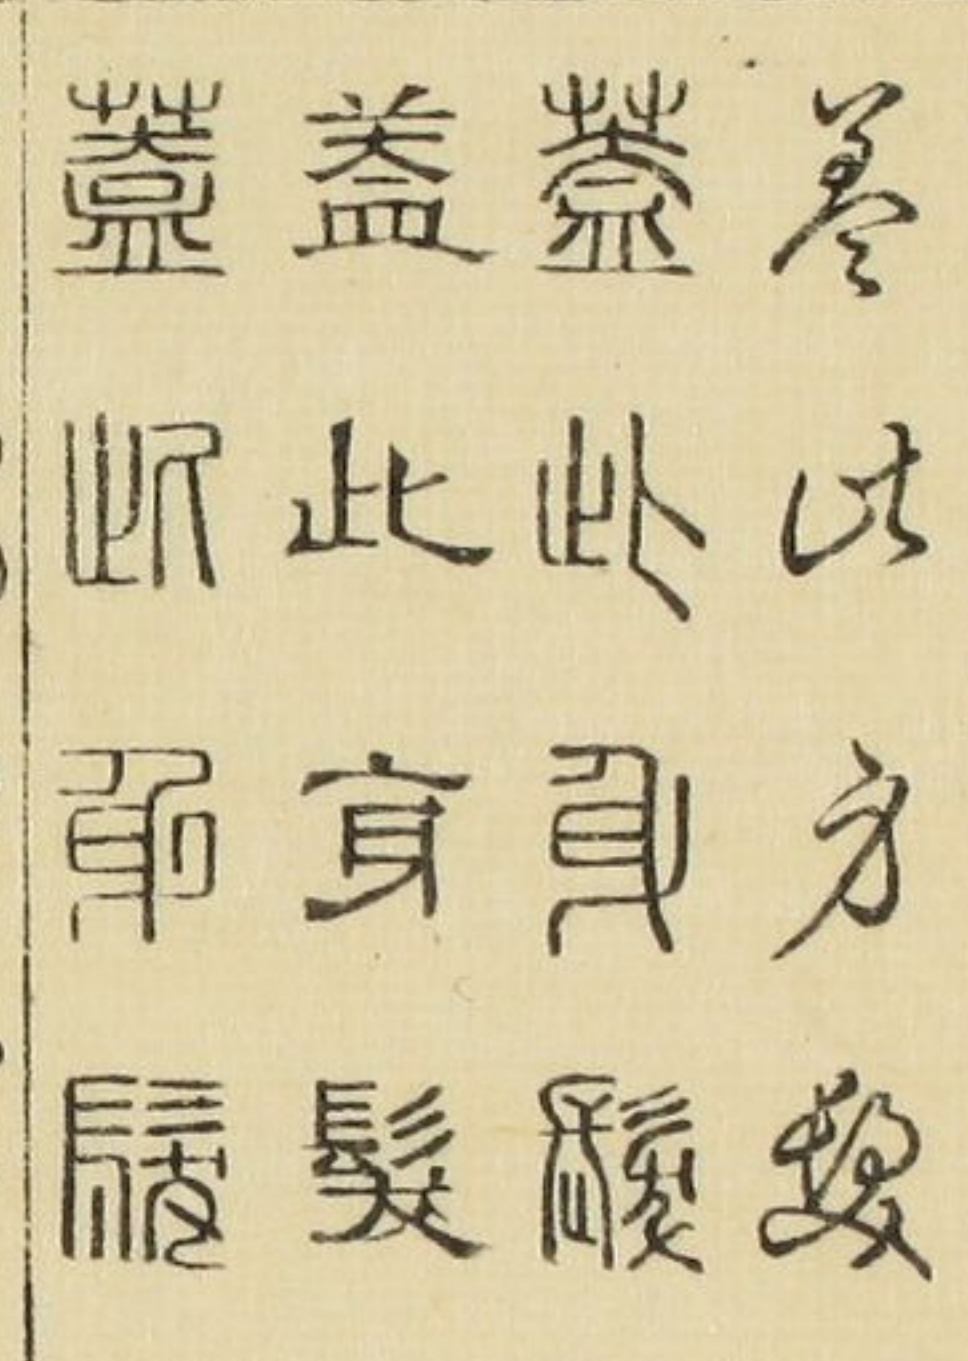 盖此身髮
蓋此身髮
盖此身髮
蓋此身髮